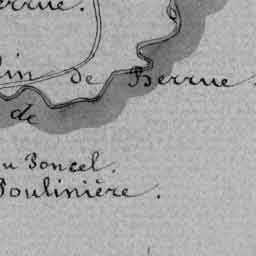 errue.
lin de Berrue.
de
du Poncel.
Poulinière.